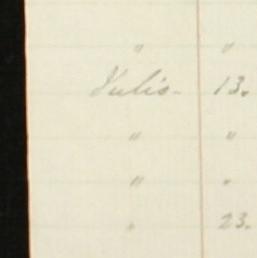 " "
Julis. 13.
" "
" "
" 23.